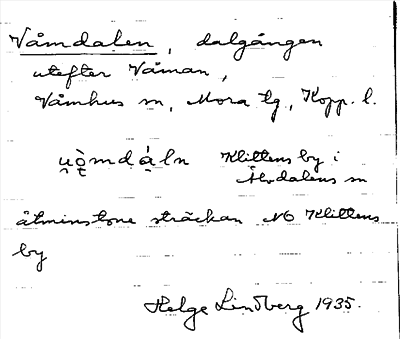 Våmdalen, dalgången
utefter Våman,
Våmhus sn, Mora tg., Kopp. l.
u̯ò̱md á̱ln Klittens by i
Älvdalens sn
åtminstone sträckan NO Klittens
by
Helge Lindberg 1935.